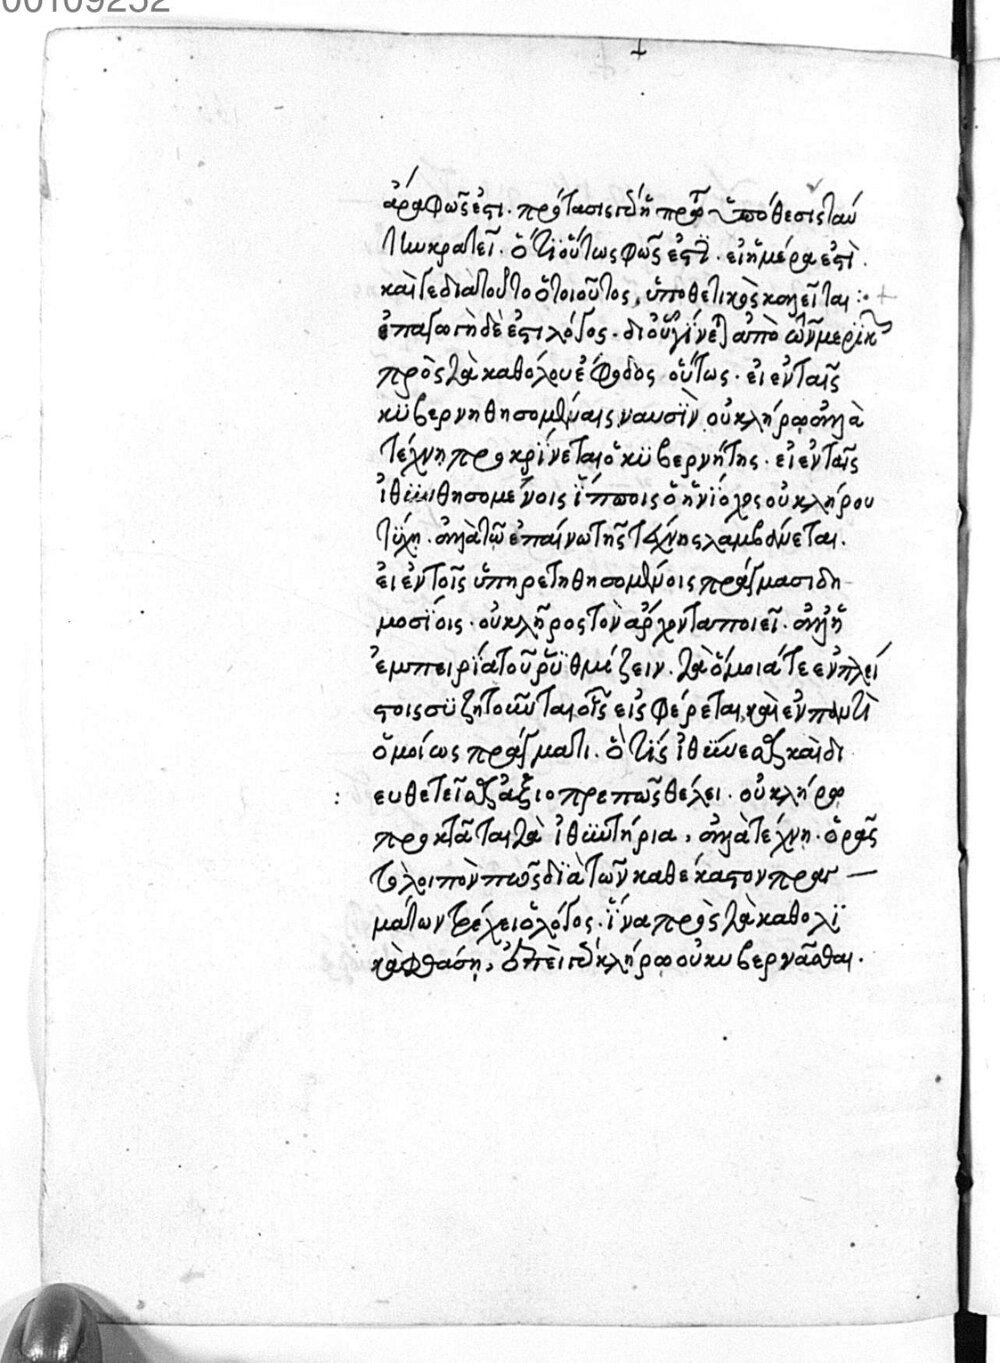 00109252
ἄρα φῶς ἐστι. πρότασις δὴ ἢ πρώτη ὑπόθεσις ταύ
την κρατεῖ. ὅτι οὕτως φῶς ἐστὶ. εἰ ἡμέρα ἐστὶ.
καὶ γε διὰ τοῦτο ὁ τοιοῦτος, ὑποθετικὸς καλεῖται :
ἐπαγωγὴ δὲ ἐστι λόγος. δι οὗ γίνεται ἀπὸ τῶν μερικῶν
πρὸς τὰ καθόλου ἐφοδος οὕτως. εἰ ἐν ταῖς
κϋβερνηθησομέναις ναυσὶν οὐ κλήρῳ ἀλλὰ
τέχνῃ προκρίνεται ὁ κϋβερνήτης. εἰ ἐν ταῖς
ἰθϋνθησομέναις ἵπποις ὁ ἡνίοχος οὐ κλήρου
τύχῃ. ἀλλὰ τῷ ἐπαίνω τῆς τέχνης λαμβάνεται.
εἰ ἐν τοῖς ὑπηρετηθησομένοις πράγμασι δη
μοσίοις. οὐ κλῆρος τὸν ἄρχοντα ποιεῖ. ἀλλ' ἡ
ἐμπειρία τοῦ ῥυθμίζειν. τὰ ὅμοιά τε ἐν πλεί
στοις συζητοῦνται οἷς εἰσφέρεται, καὶ ἐν παντὶ
ὁμοίως πράγματι. ὅ τις ἰθύνεσθαι καὶ δι
ευθετεῖσθαι ἀξιοπρεπῶς θέλει. οὐ κλήρῳ
προκτᾶται τὰ ἰθϋντήρια, ἀλλὰ τέχνῃ. ὁρᾷς
τὸ λοιπὸν πῶς διὰ τῶν καθέκαστον πραγ
μάτων τρέχει ὁ λόγος. ἵνα πρὸς τὰ καθολι
κὰ φθάσῃ, ὅπερ ἐστὶ τὸ κλήρῳ οὐ κυβερνᾶσθαι.